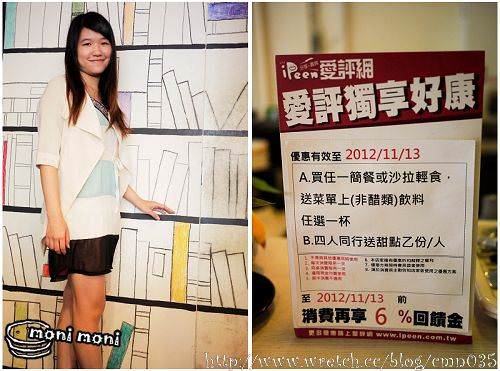 moni moni
iPeen 愛評網
愛評獨享好康
優惠有效至 2012/11/13
A.買任一簡餐或沙拉輕食，
送菜單上(非醋類)飲料
任選一杯
B.四人同行送甜點乙份/人
至 2012/11/13 前
消費再享 6 %回饋金
更多優惠請上愛評網 www.ipeen.com.tw
http://www.wretch.cc/blog/cmp035